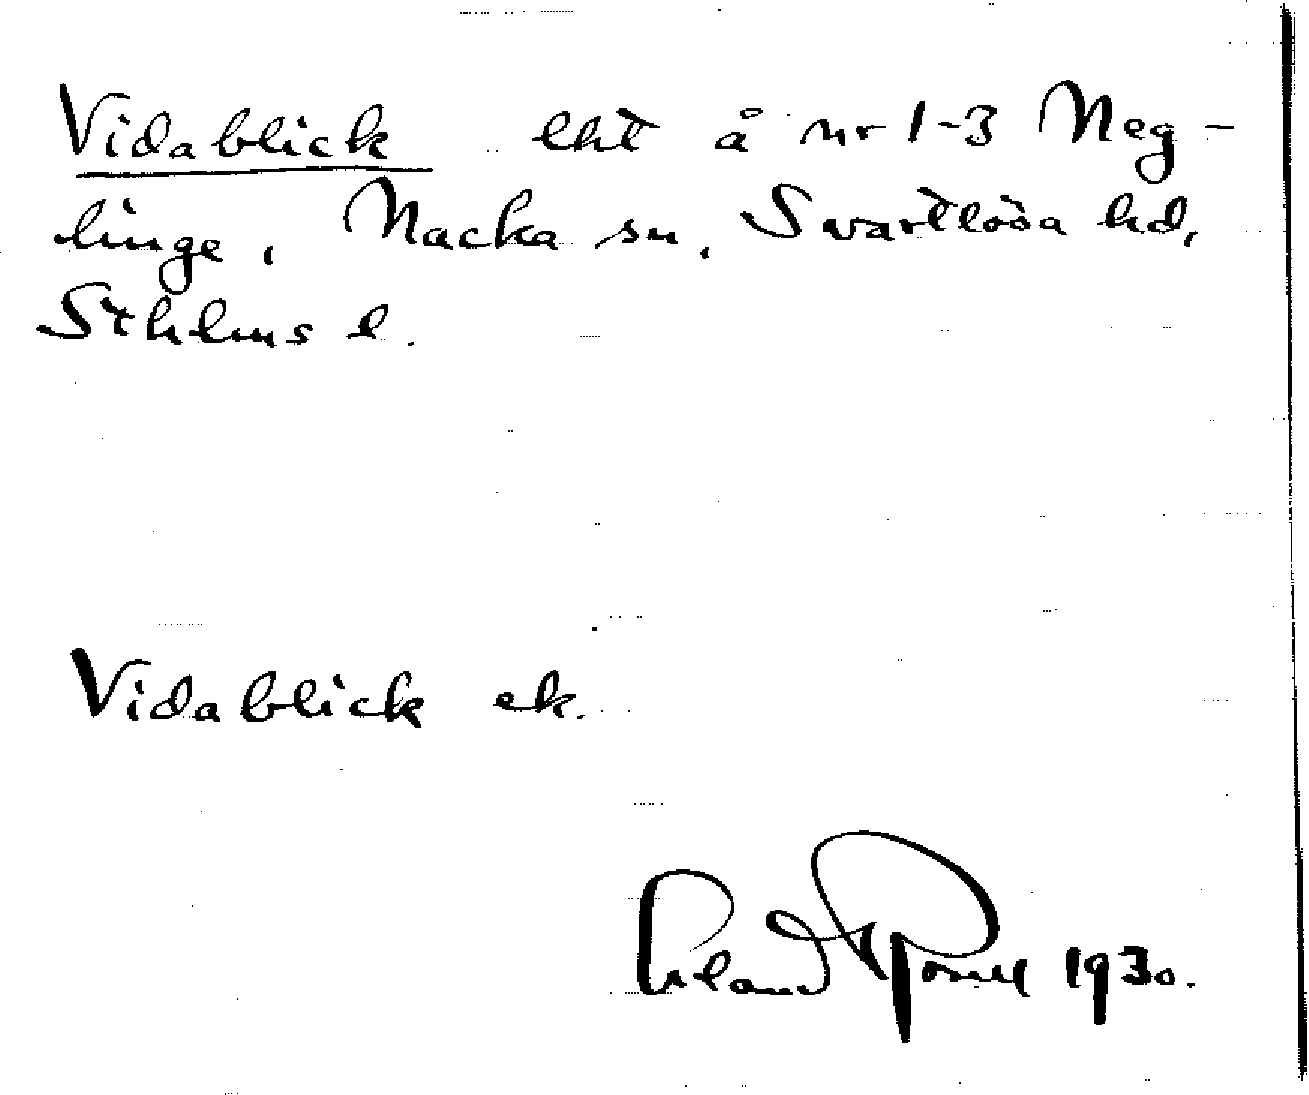 Vidablick lht å nr 1-3 Neg-
linge, Nacka sn, Svartlösa hd,
Sthlms l.
Vidablick ek.
1930.